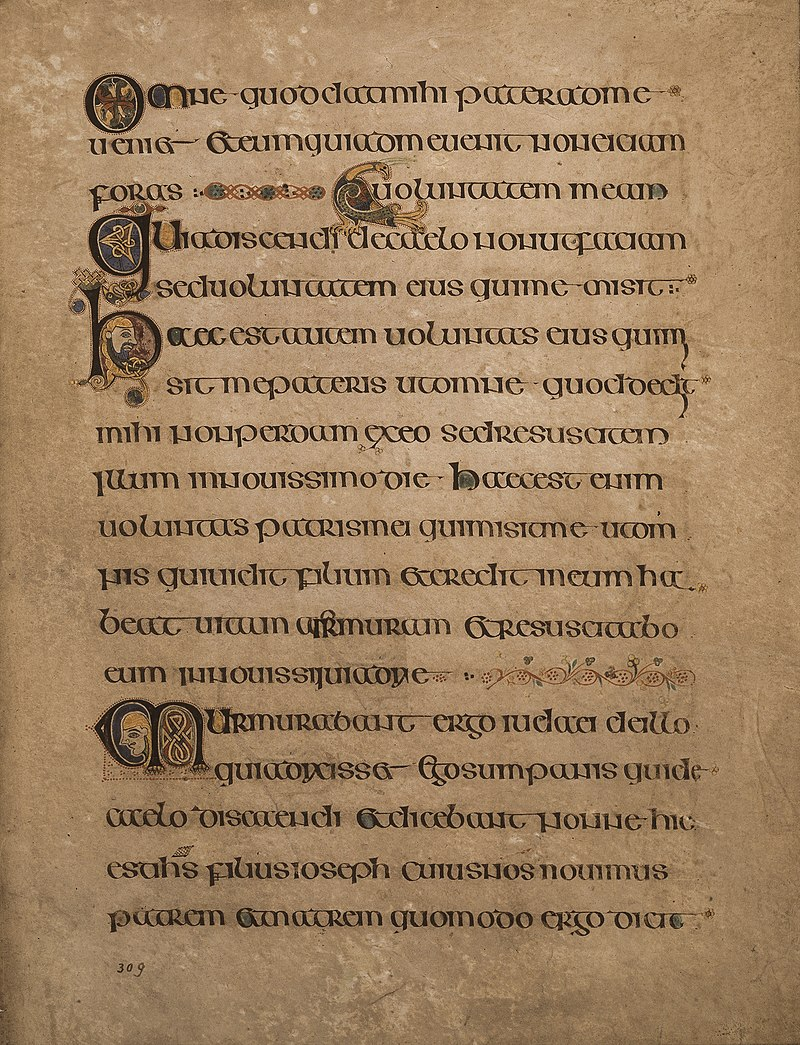 Omne quod dat mihi pater ad me
ueniet et eum qui ad me uenit non eiciam
foras :· uoluntatem meam
Quia discendi de caelo non ut faciam
sed uoluntatem eius qui me misit :·
Haec est autem uoluntas eius qui m
sit me pateris ut omne quod dedit
mihi non perdam ex eo sed resuscitem
illum in nouissimo die · haec est enim
uoluntas patris mei qui misit me ut om
nis qui uidit filium et credit in eum ha
beat uitam et resuscitabo
eum in
Murmurabant ergo iudaei de illo
quia Ego sum panis qui de
caelo discaendi et dicebant nonne hic
est ihs filius ioseph cuius nos nouimus
patrem et matrem quomodo ergo dicit
309